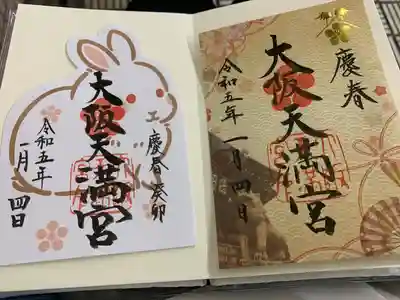 慶春癸卯
大阪天満宮
令和五年
一月四日
慶春
大阪天満宮
令和五年一月四日